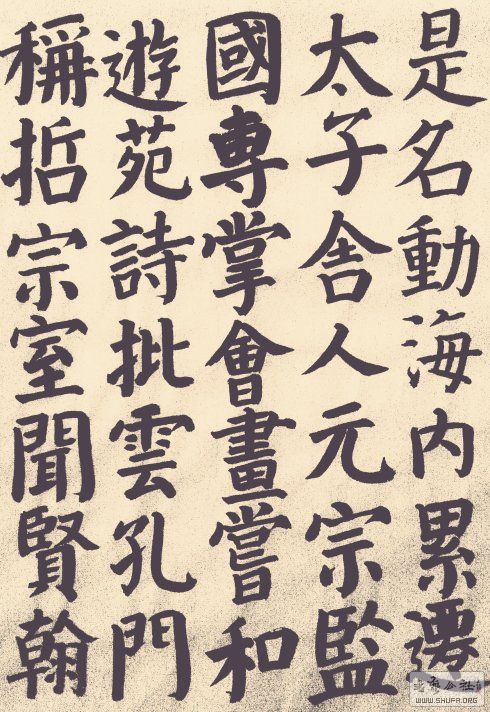 是名動海内累遷
太子舍人元宗監
國專掌會畫嘗和
遊苑詩批雲孔門
稱哲宗室聞賢翰
WWW.SHUFA.ORG